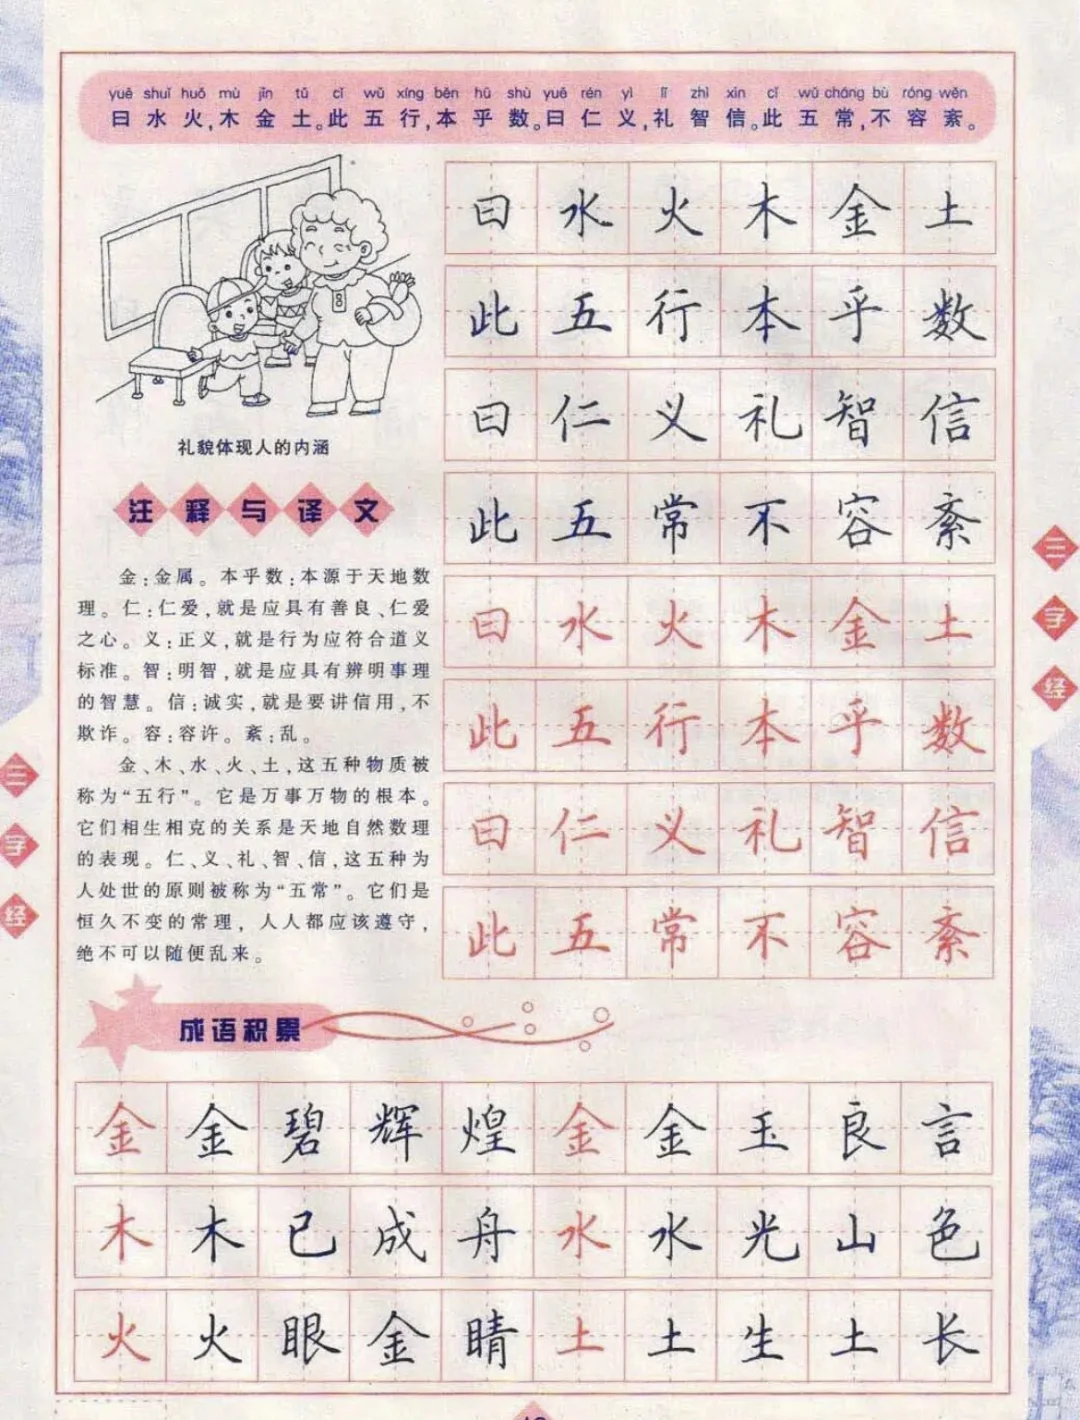 yuē shuǐ huǒ mù jīn tǔ cǐ wǔ xíng běn hū shù yuē rén yì lǐ zhì xìn cǐ wǔ cháng bù róng wěn
曰水火,木金土。此五行,本乎数。曰仁义,礼智信。此五常,不容紊。
礼貌体现人的内涵
注释与译文
金:金属。本乎数:本源于天地数
理。仁:仁爱,就是应具有善良、仁爱
之心。义:正义,就是行为应符合道义
标准。智:明智,就是应具有辨明事理
的智慧。信:诚实,就是要讲信用,不
欺诈。容:容许。紊:乱。
金、木、水、火、土,这五种物质被
称为“五行”。它是万事万物的根本。
它们相生相克的关系是天地自然数理
的表现。仁、义、礼、智、信,这五种为
人处世的原则被称为“五常”。它们是
恒久不变的常理,人人都应该遵守,
绝不可以随便乱来。
曰水火木金土
此五行本乎数
曰仁义礼智信
此五常不容紊
曰水火木金土
此五行本乎数
曰仁义礼智信
此五常不容紊
三字经
三字经
成语积累
金金碧辉煌金金玉良言
木木已成舟水水光山色
火火眼金睛土土生土长